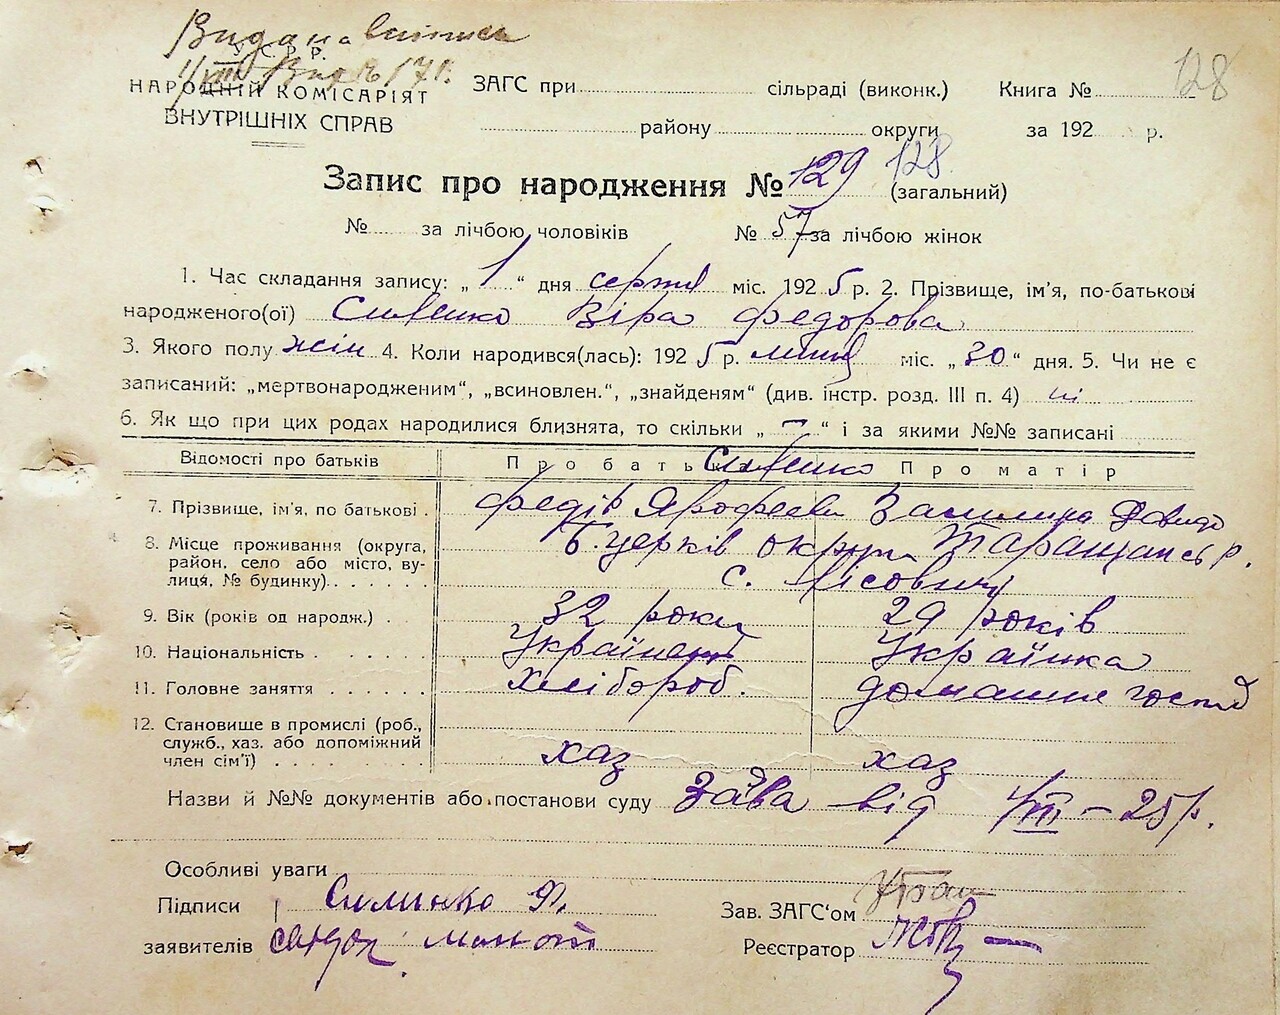 Видана виписка
У.С.Р.Р.
НАРОДНИЙ КОМІСАРІЯТ
ВНУТРІШНІХ СПРАВ
ЗАГС при сільраді (виконк.) Книга № 128
району округи за 192 р.
Запис про народження № 129 128 (загальний)
№ за лічбою чоловіків № 57 за лічбою жінок
1. Час складання запису: „ 1 “ дня серпня міс. 192 5 р. 2. Прізвище, ім'я, по-батькові
народженого(ої) Віра Федорова
3. Якого полу жін 4. Коли народився(лась): 192 5 р. липня міс. „ 30 “ дня. 5. Чи не є
записаний: „мертвонародженим“, „всиновлен.“, „знайденям“ (див. інстр. розд. III п. 4) ні
6. Як що при цих родах народилися близнята, то скільки „ – “ і за якими №№ записані
Відомості про батьків Про батька Про матір
7. Прізвище, ім'я, по батькові . Федір Ярофеєв Василина Давидо
8. Місце проживання (округа, Б. церків округи Таращанськ р.
район, село або місто, ву- с. Лісовичі
лиця, № будинку) . . . . . .
9. Вік (років од народж.) . 32 роки 29 років
10. Національність . . . . . . Українець Українка
11. Головне заняття . . . . . . хлібороб. домашнє господ
12. Становище в промислі (роб.,
служб., хаз. або допоміжний хаз хаз
член сім'ї) . . . . . . . .
Назви й №№ документів або постанови суду Заява від 1/VIII – 25 р.
Особливі уваги
Підписи Ф. Зав. ЗАГС'ом
заявителів Реєстратор